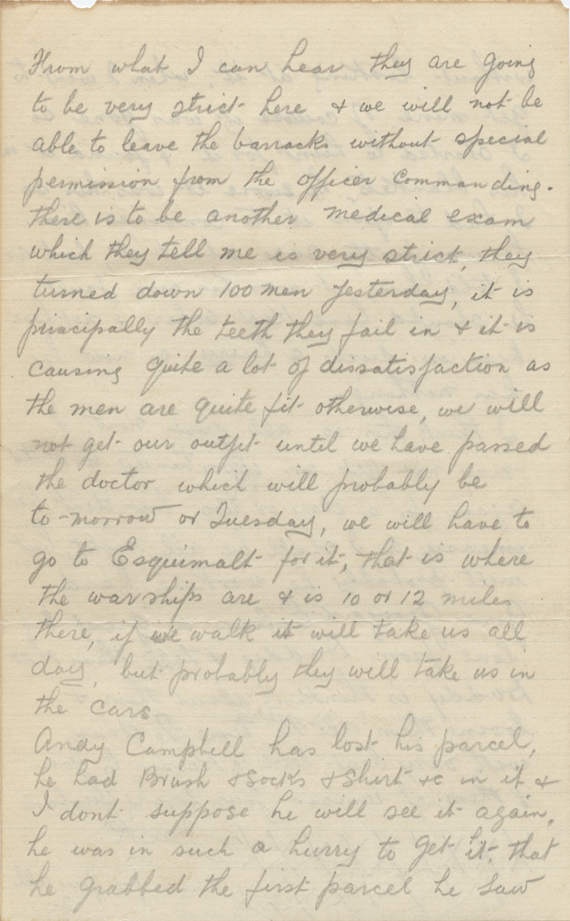 From what I can hear they are going
to be very strict here & we will not be
able to leave the barracks without special
permission from the officer commanding.
there is to be another medical exam
which they tell me is very strict, they
turned down 100 men yesterday, it is
principally the teeth they fail in & it is
causing quite a lot of dissatisfaction as
the men are quite fit otherwise, we will
not get our outfit until we have passed
the doctor which will probably be
to-morrow or Tuesday, we will have to
go to Esquimalt for it, that is where
the warships are & is 10 or 12 miles
there, if we walk it will take us all
day, but probably they will take us in
the cars
Andy Campbell has lost his parcel,
he had Brush & Socks & Shirt &c in it &
I dont suppose he will see it again,
he was in such a hurry to get it that
he grabbed the first parcel he saw